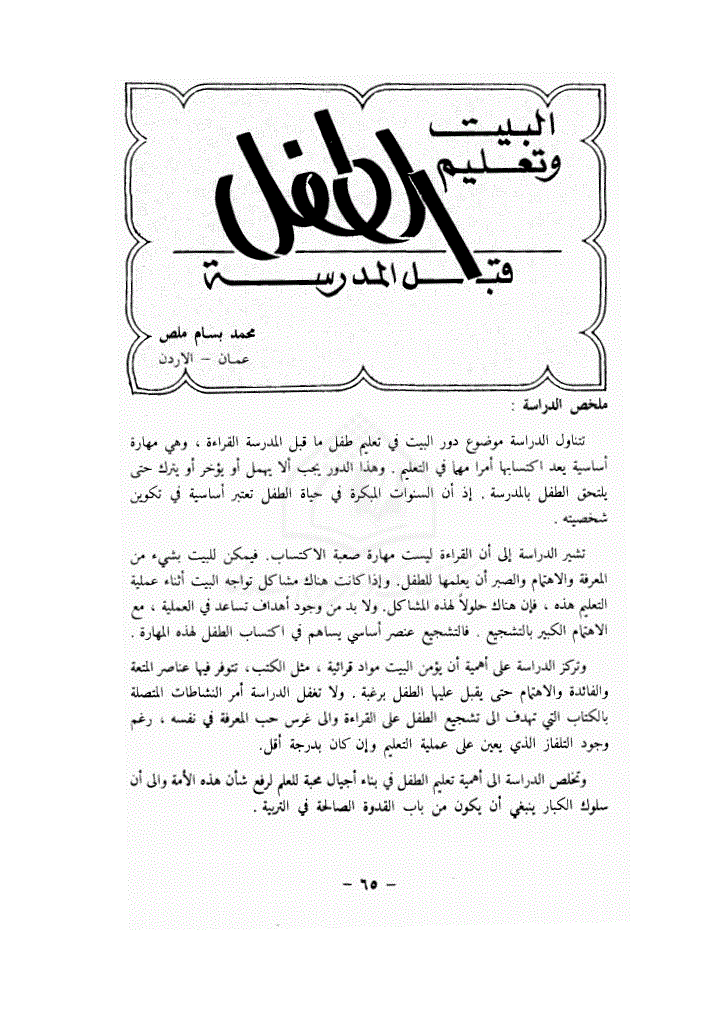 البيت
وتعليم
الطفل
قبل المدرسة
محمد بسام ملص
عمان - الاردن
ملخص الدراسة :
تتناول الدراسة موضوع دور البيت في تعليم طفل ما قبل المدرسة القراءة ، وهي مهارة
أساسية يعد اكتسابها أمرا مهما في التعليم . وهذا الدور يجب ألا يهمل أو يؤخر أو يترك حتى
يلتحق الطفل بالمدرسة . إذ أن السنوات المبكرة في حياة الطفل تعتبر أساسية في تكوين
شخصيته .
تشير الدراسة إلى أن القراءة ليست مهارة صعبة الاكتساب. فيمكن للبيت بشيء من
المعرفة والاهتمام والصبر أن يعلمها للطفل. وإذا كانت هناك مشاكل تواجه البيت أثناء عملية
التعليم هذه ، فإن هناك حلولاً لهذه المشاكل. ولا بد من وجود أهداف تساعد في العملية ، مع
الاهتمام الكبير بالتشجيع . فالتشجيع عنصر أساسي يساهم في اكتساب الطفل لهذه المهارة .
وتركز الدراسة على أهمية أن يؤمن البيت مواد قرائية ، مثل الكتب، تتوفر فيها عناصر المتعة
والفائدة والاهتمام حتى يقبل عليها الطفل برغبة . ولا تغفل الدراسة أمر النشاطات المتصلة
بالكتاب التي تهدف الى تشجيع الطفل على القراءة والى غرس حب المعرفة في نفسه ، رغم
وجود التلفاز الذي يعين على عملية التعليم وإن كان بدرجة أقل.
وتخلص الدراسة الى أهمية تعليم الطفل في بناء أجيال محبة للعلم لرفع شأن هذه الأمة والى أن
سلوك الكبار ينبغي أن يكون من باب القدوة الصالحة في التربية .
- ٦٥ -